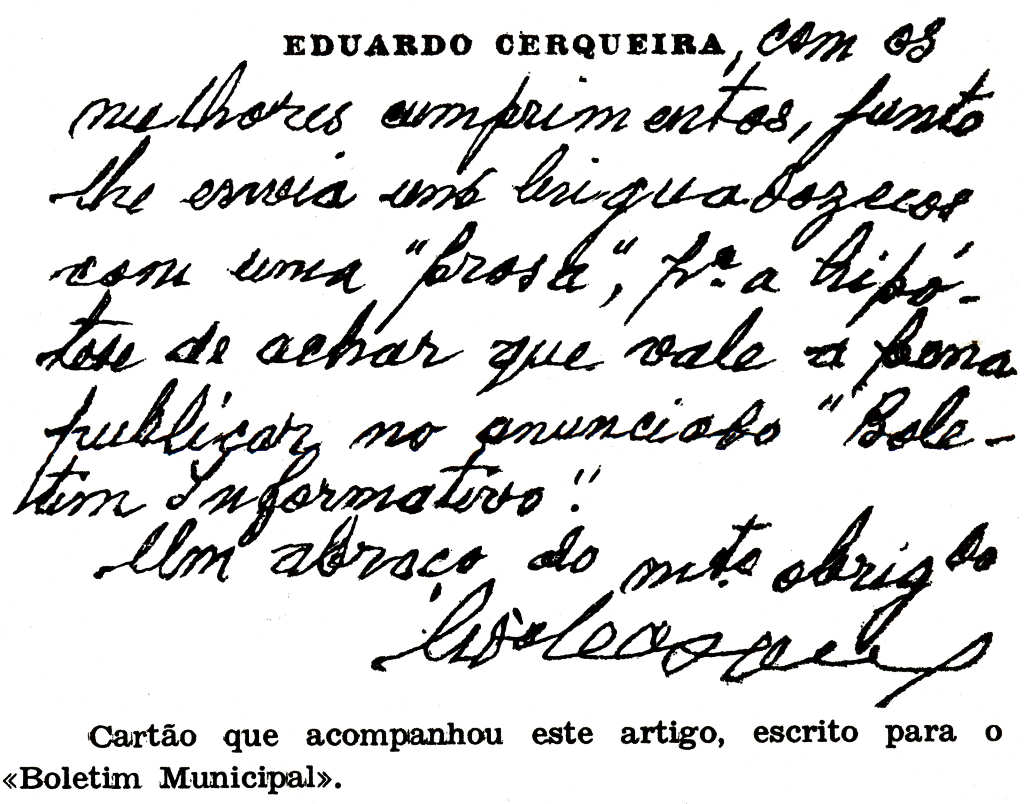 EDUARDO CERQUEIRA, com os
melhores cumprimentos, junto
lhe envia uns linguadozecos
com uma "prosa", p.ª a hipó-
tese de achar que vale a pena
publicar no anunciado "Bole-
tim Informativo".
Um abraço do mt.º obrig.do
Cartão que acompanhou este artigo, escrito para o
«Boletim Municipal».